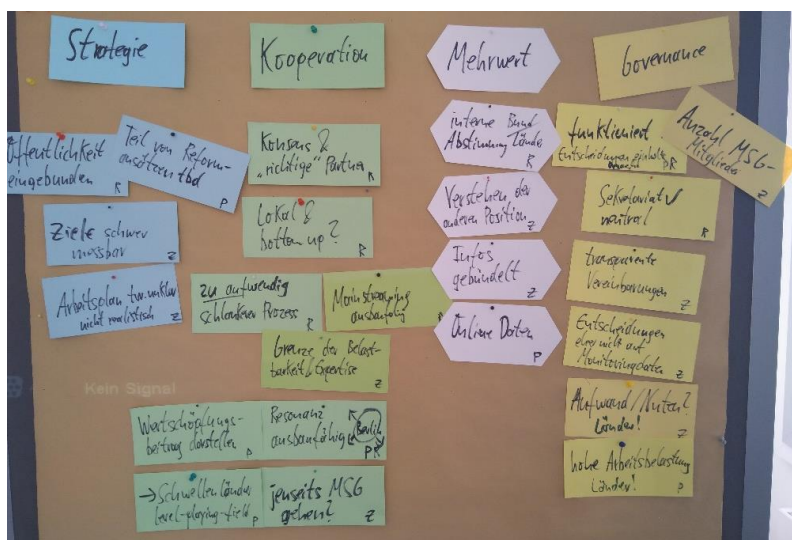 Strategie
Öffentlichkeit
eingebunden
R
Teil von Reform-
ansätzen tbd
P
Ziele schwer
messbar
Z
Arbeitsplan tw. unklar
nicht realistisch
Z
Kooperation
Konsens &
„richtige" Partner
R
Lokal &
bottom up?
R
zu aufwendig
schlankerer Prozess
R
Mainstreaming
ausbaufähig
R
Grenze der Belast-
barkeit & Expertise
Z
Wertschöpfungs-
beitrag darstellen
P
Resonanz
ausbaufähig
Berlin
P
→ Schwellenländer
level-playing-field
P
jenseits MSG
gehen?
Z
Mehrwert
interne Bund
Abstimmung Länder
R
Verstehen der
anderen Position
Z
Infos
gebündelt
Z
Online Daten
P
Governance
funktioniert
Entscheidungen
PR
Anzahl MSG-
Mitglieder
Z
Sekretariat ✓
neutral
R
transparente
Vereinbarungen
Z
Entscheidungen
eher nicht auf
Monitoringdaten
Z
Aufwand/Nutzen?
Länder!
Z
hohe Arbeitsbelastung
Länder!
P
Kein Signal